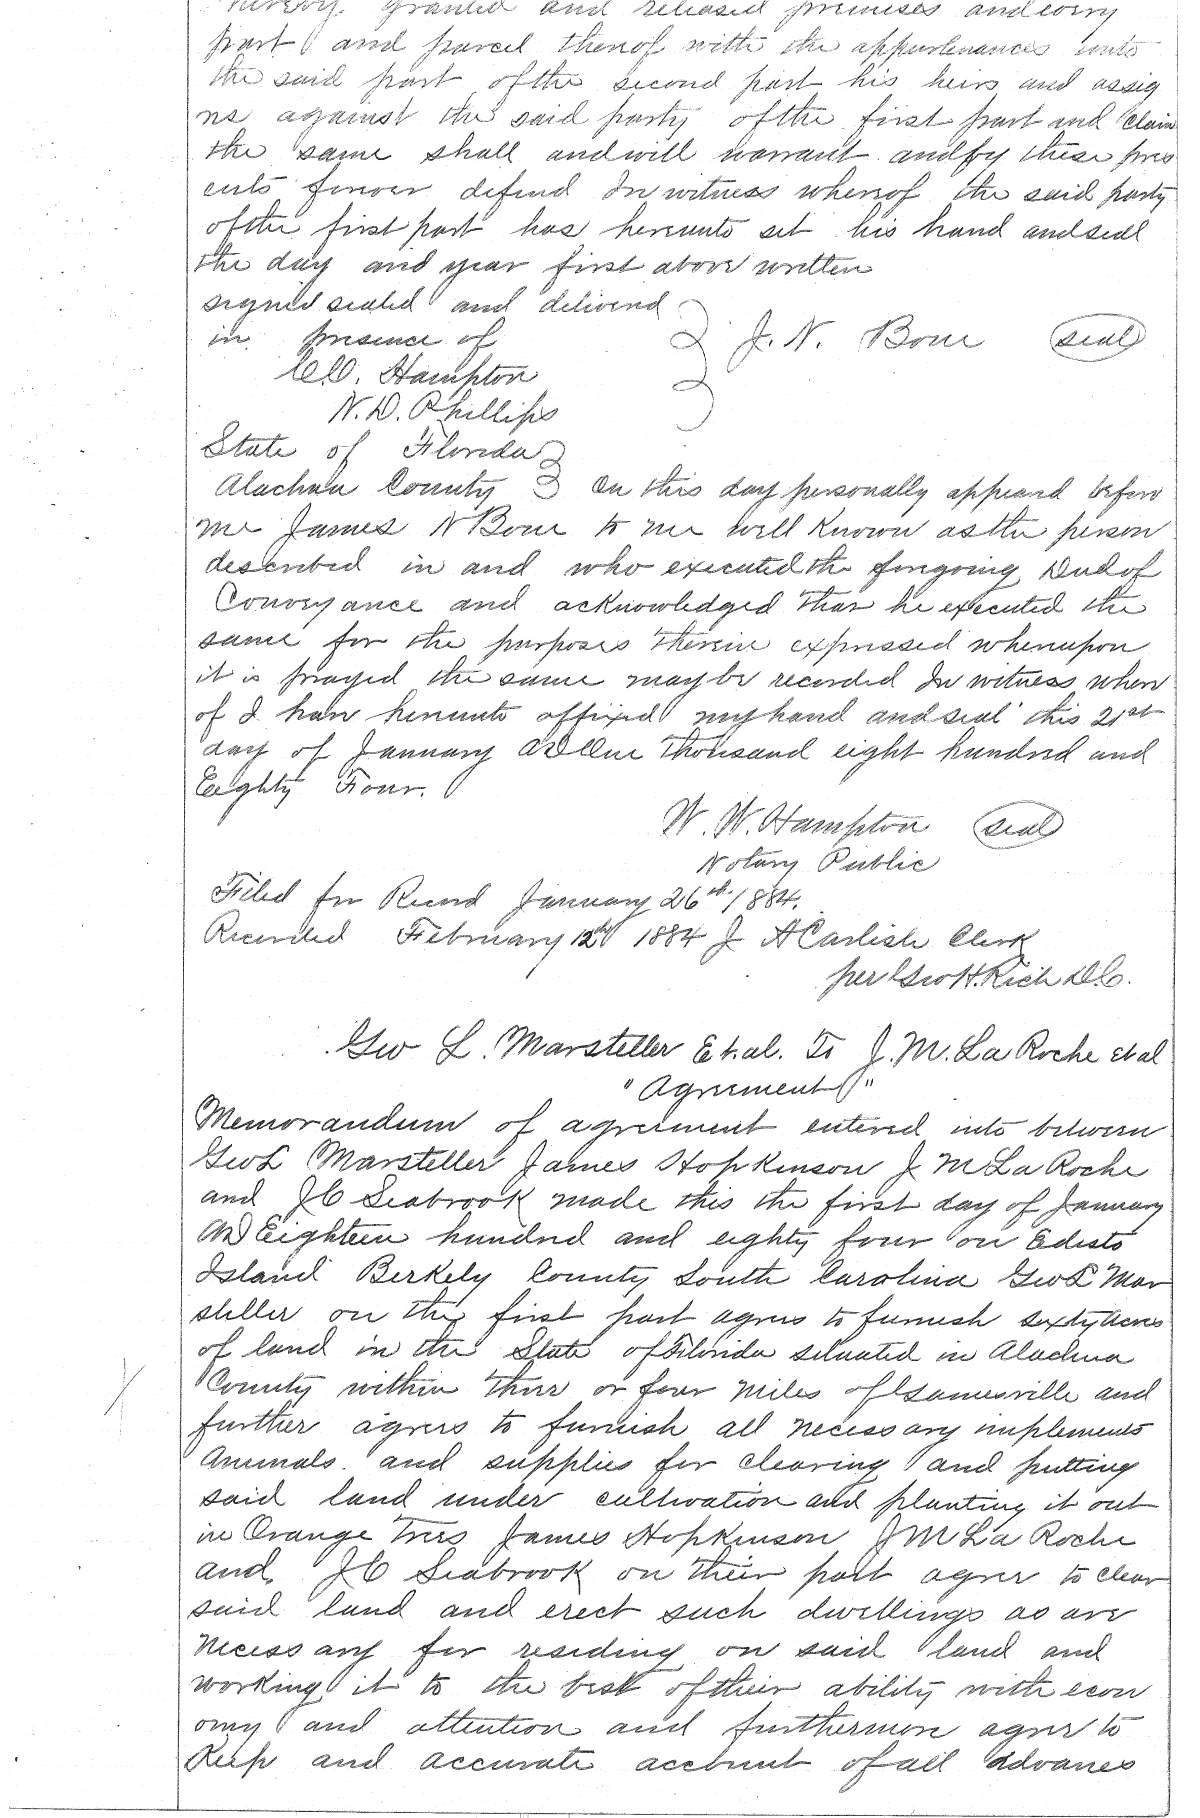 hereby granted and released premises and every
part and parcel thereof with the appurtenances unto
the said part of the second part his heirs and assig
ns against the said party of the first part and Claim
the same shall and will warrant and by these pres
ents forever defend In witness whereof the said party
of the first part has hereunto set his hand and seal
the day and year first above written
signed sealed and delivered
in presence of J. N. Bone seal
Hampton
N. D. Phillips
State of Florida
Alachua County On this day personally appeard before
me James N Bone to me well Known as the person
described in and who executed the foregoing Deed of
Conveyance and acknowledged that he executed the
same for the purposes therein expressed whereupon
it is prayed the same may be recorded In witness where
of I have hereunto affixed my hand and seal this 21st
day of January AD One thousand eight hundred and
Eighty Four.
W. W. Hampton seal
Notary Public
Filed for Record January 26th 1884.
Recorded February 12th 1884 J A Carlisle Clerk
per Geo H. Rich D.C.
Geo L. Marsteller Et. al. To J. M. La Roche et al
"Agreement"
Memorandum of agreement entered into between
Geo L Marsteller James Hopkinson J M La Roche
and J C Seabrook made this the first day of January
AD Eighteen hundred and eighty four on Edisto
Island Berkely County South Carolina Geo L Mar
steller on the first part agrees to furnish sixty acres
of land in the State of Florida situated in Alachua
County within three or four miles of Gainesville and
further agrees to furnish all necessary implements
Animals. and supplies for clearing and putting
said land under cultivation and planting it out
in Orange Trees James Hopkinson J M La Roche
and J C Seabrook on their part agree to clear
said land and erect such dwellings as are
necessary for residing on said land and
working it to the best of their ability with econ
omy and attention and furthermore agree to
Keep and accurate account of all advances